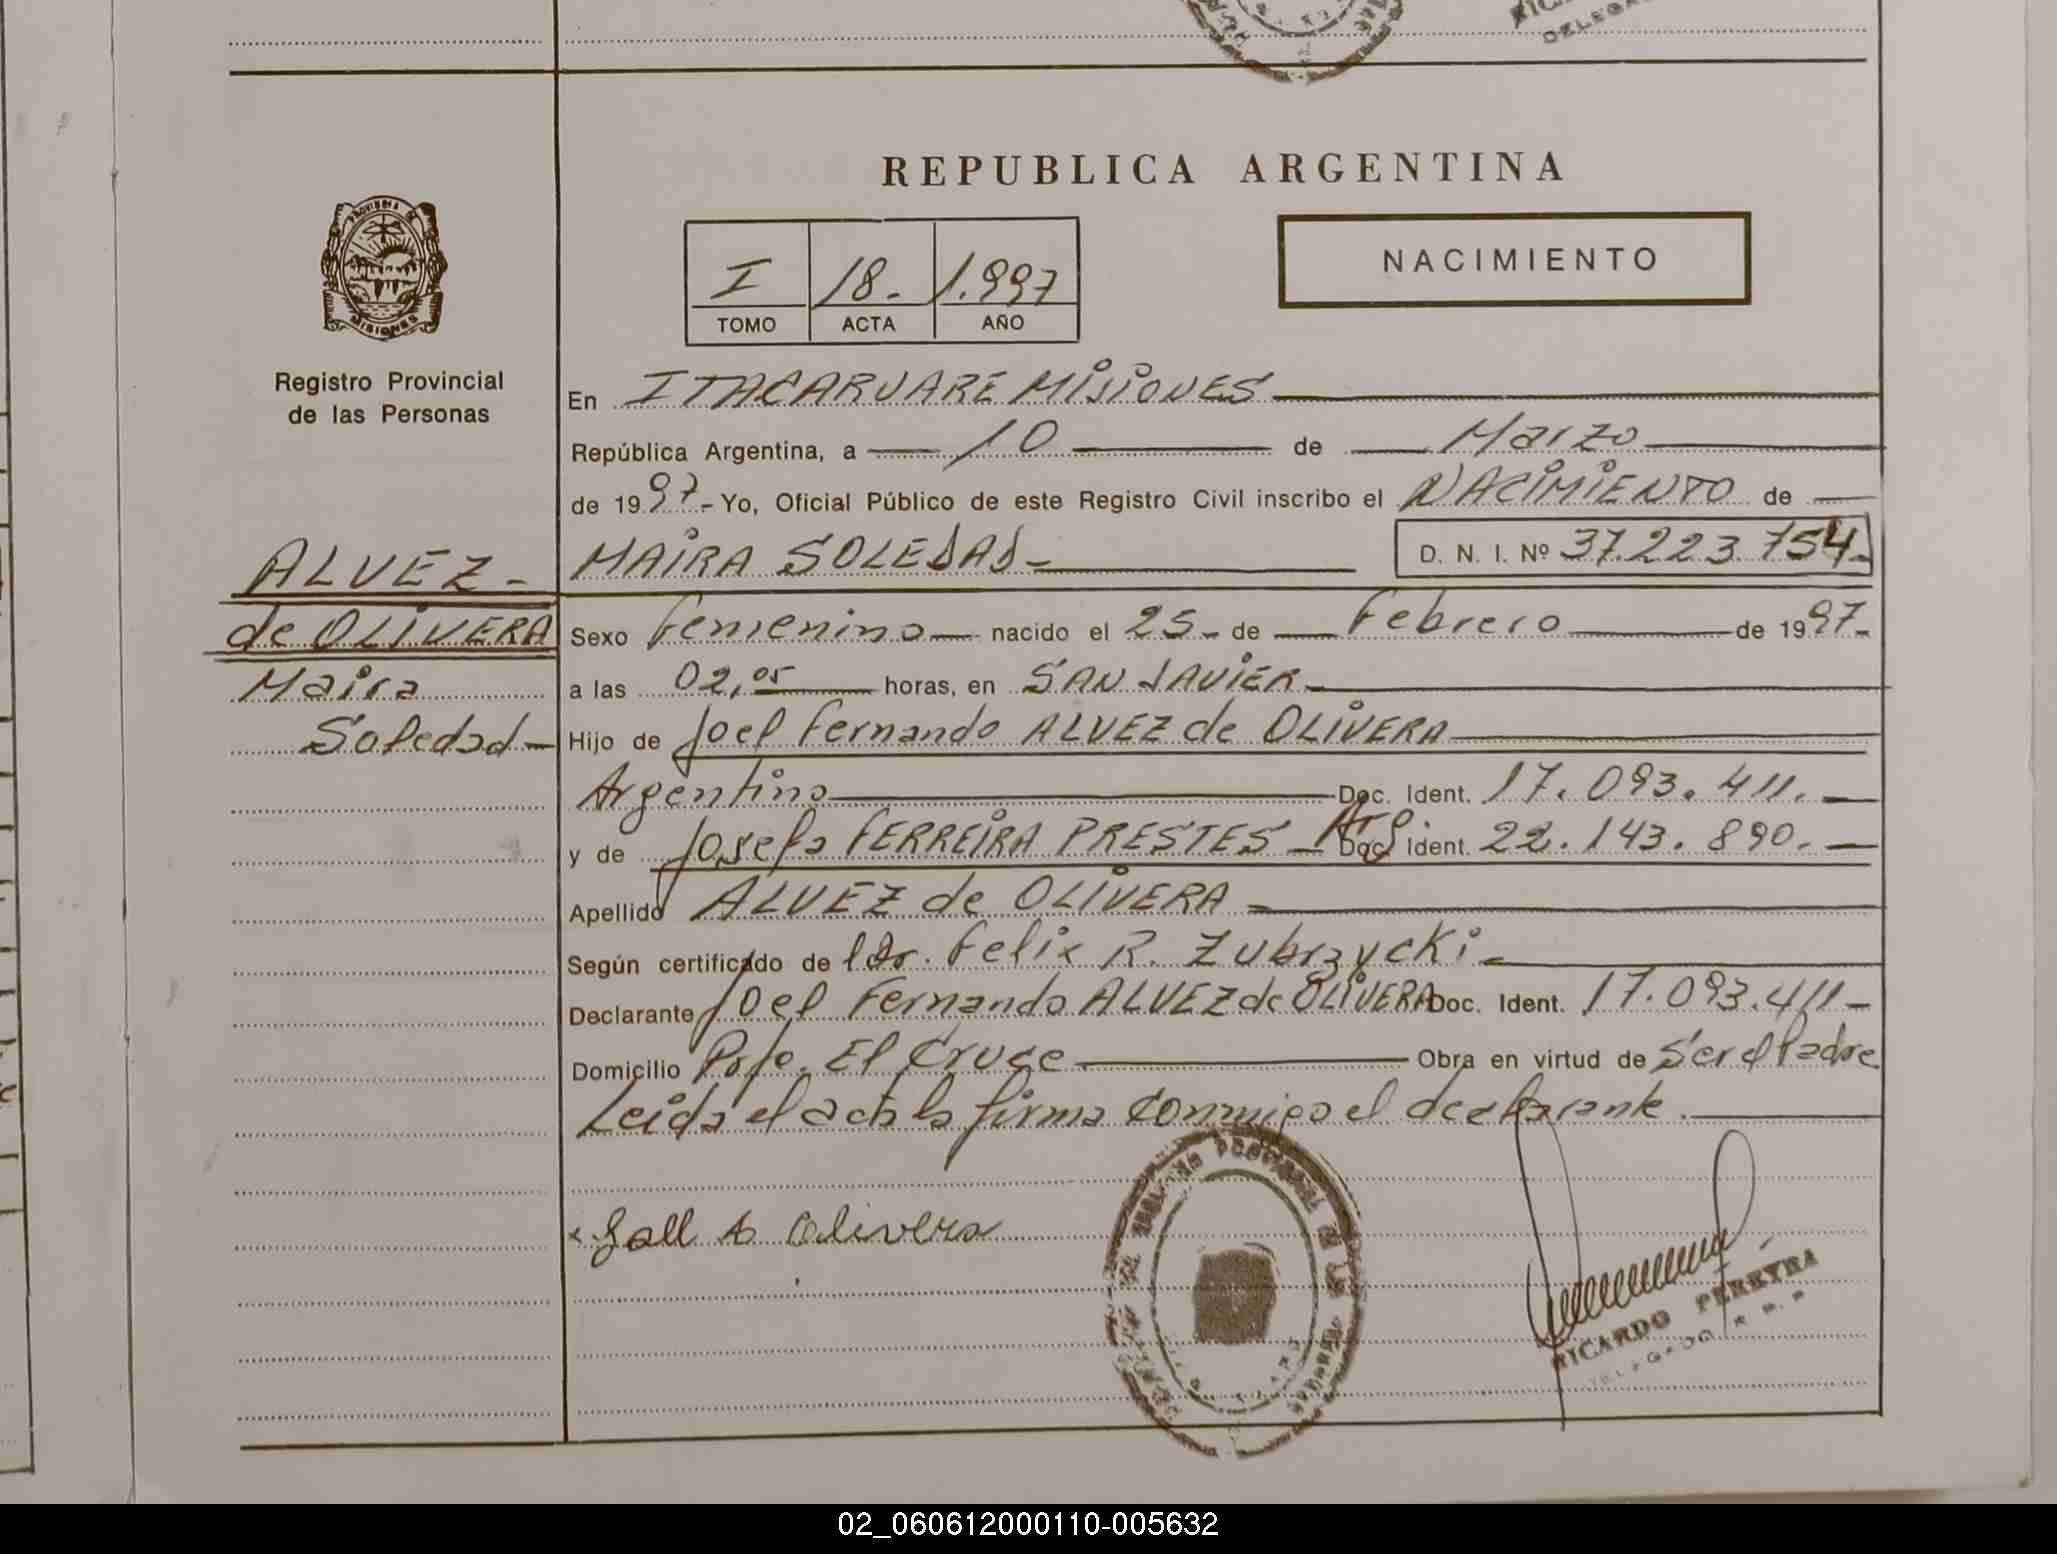 REPUBLICA ARGENTINA
I 18. 1.997
TOMO ACTA AÑO
NACIMIENTO
PROVINCIA DE
MISIONES
Registro Provincial
de las Personas
En ITACARUARE MISIONES
República Argentina, a 10 de Marzo
de 1997 - Yo, Oficial Público de este Registro Civil inscribo el NACIMIENTO de
MAIRA SOLEDAD - D. N. I. Nº 37.223.754-
ALVEZ -
de OLIVERA
Maira
Soledad -
Sexo Femenino nacido el 25 - de Febrero de 1997-
a las 02,05 horas, en SAN JAVIER
Hijo de Joel Fernando ALVEZ de OLIVERA
Argentino Doc. Ident. 17.093.411. -
y de Josefa FERREIRA PRESTES - Arg Doc. Ident. 22.143.890. -
Apellido ALVEZ de OLIVERA -
Según certificado de Dr. Felix R. Zubrzycki -
Declarante Joel Fernando ALVEZ de OLIVERA Doc. Ident. 17.093.411-
Domicilio El Cruce Obra en virtud de Ser el Padre
Leida el acta la firma conmigo el declarante.
Olivera
RICARDO PEREYRA
DELEGADO R. P. P.
02_060612000110-005632